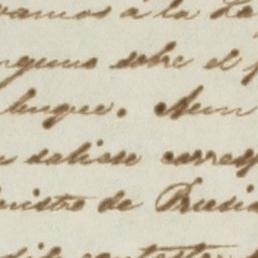 vamos á la La
nguno sobre el p
buque. Aun
saliese corresp
inistro de Prusia